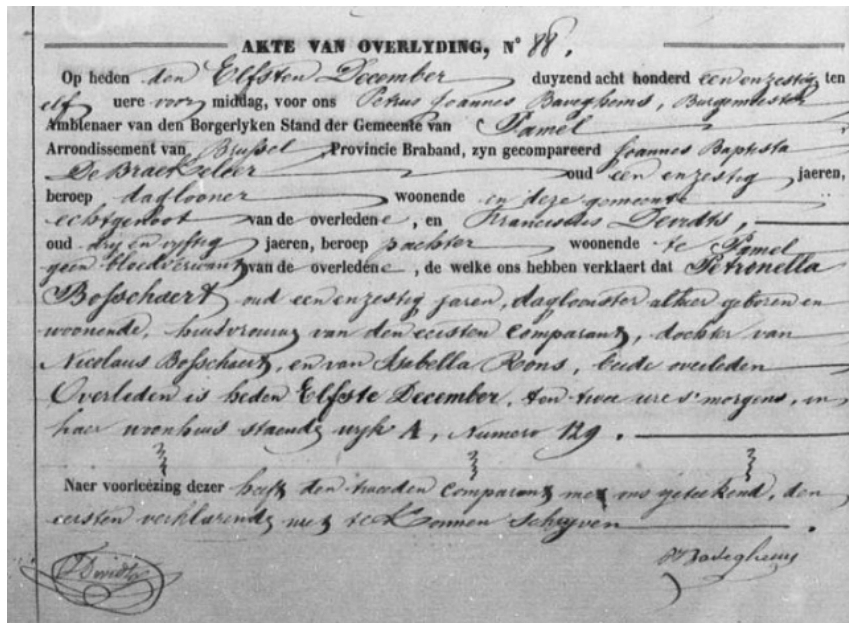 AKTE VAN OVERLYDING, N° 88.
Op heden den Elfsten December duyzend acht honderd een en zestig ten
elf uere voor middag, voor ons Petrus Joannes Baveghems, Burgemeester
Ambtenaer van den Borgerlyken Stand der Gemeente van Pamel
Arrondissement van Brussel Provincie Braband, zyn gecompareerd Joannes Baptista
De Braekeleer oud een en zestig jaeren,
beroep daglooner woonende in deze gemeente
echtgenoot van de overledene, en Franciscus Devidts,
oud dry en vyftig jaeren, beroep pachter woonende te Pamel
geen bloedverwant van de overledene, de welke ons hebben verklaert dat Petronella
Bosschaert oud een en zestig jaren, dagloonster alhier geboren en
woonende, huisvrouw van den eersten comparant, dochter van
Nicolaus Bosschaert, en van Isabella Rons, beide overleden
Overleden is heden Elfste December, ten twee ure s'morgens, in
haer woonhuis staende wyk A, Numero 129.
Naer voorleézing dezer heeft den tweeden comparant met ons geteekend, den
eersten verklarende niet te konnen schryven.
Devidts
Baveghems